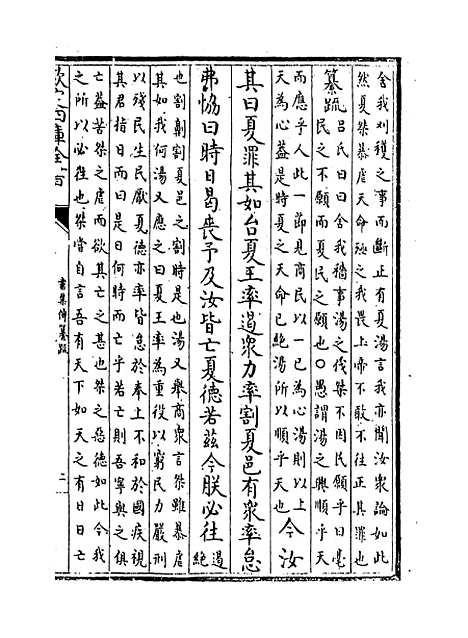 舍我刈穫之事而斷正有夏湯言我亦聞汝衆論如此
然夏桀暴虐天命殛之我畏上帝不敢不往正其罪也
纂疏 呂氏曰曰舍我穡事湯之伐桀不因民願乎曰亳
民之不願而夏民之願也○愚謂湯之興順乎天
而應乎人此一節見商民以一已為心湯則以上
天為心蓋是時夏之天命已絶湯所以順乎天也 今汝
其曰夏罪其如台夏王率遏衆力率割夏邑有衆率怠
弗協曰時日曷喪予及汝皆亡夏德若兹今朕必往 遏絶
也割劓割夏邑之割時是也湯又舉商衆言桀雖暴虐
其如我何湯又應之曰夏王率為重役以窮民力嚴刑
以殘民生民厭夏德亦率皆怠於奉上不和於國疾視
其君指日而曰是日何時而亡乎若亡則吾寧與之俱
亡蓋苦桀之虐而欲其亡之甚也桀之惡德如此今我
之所以必往也桀嘗自言吾有天下如天之有日日亡
欽定四庫全書
書集傳纂疏
二